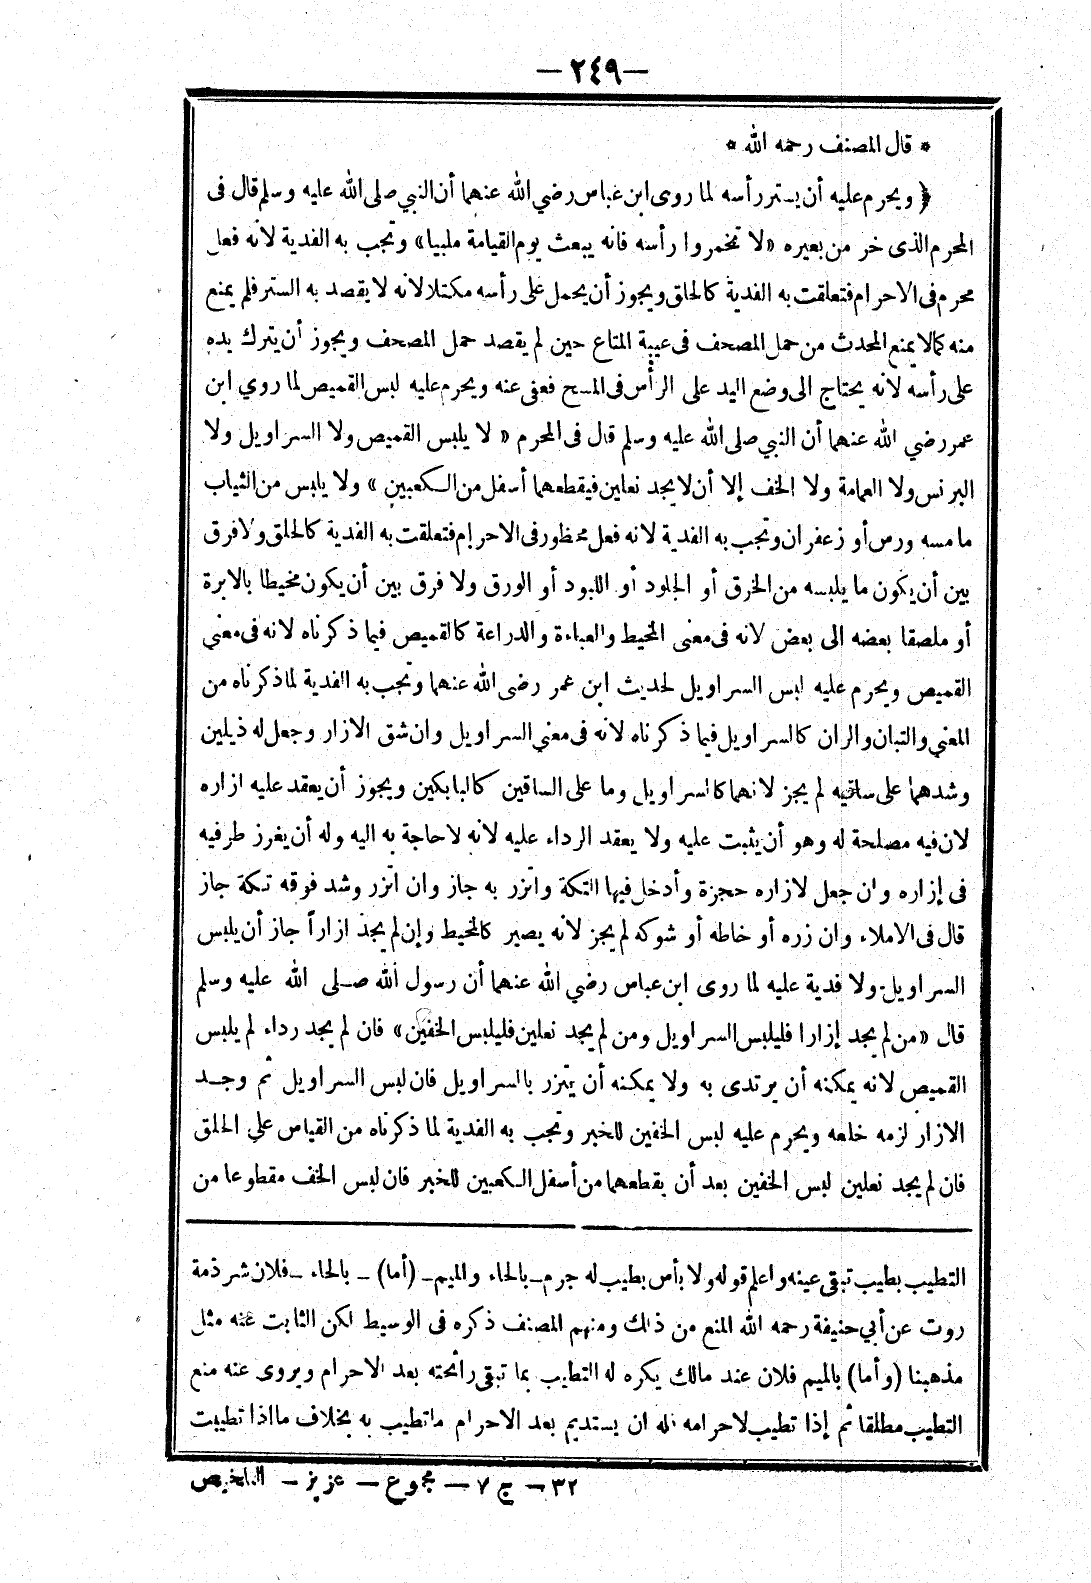 — ٢٤٩ —
* قال المصنف رحمه الله *
﴿ ويحرم عليه أن يستر رأسه لما روى ابن عباس رضي الله عنهما أن النبي صلى الله عليه وسلم قال فى
المحرم الذى خر من بعيره «لا تخمروا رأسه فانه يبعث يوم القيامة ملبيا» وتجب به الفدية لأنه فعل
محرم فى الاحرام فتعلقت به الفدية كالحلق ويجوز أن يحمل على رأسه مكتلا لانه لا يقصد به الستر فلم يمنع
منه كما لا يمنع المحدث من حمل المصحف فى عيبة المتاع حين لم يقصد حمل المصحف ويجوز أن يترك يده
على رأسه لانه يحتاج الى وضع اليد على الرأس فى المسح فعفى عنه ويحرم عليه لبس القميص لما روي ابن
عمر رضي الله عنهما أن النبي صلى الله عليه وسلم قال فى المحرم « لا يلبس القميص ولا السراويل ولا
البرنس ولا العمامة ولا الخف إلا أن لا يجد نعلين فيقطعهما أسفل من الكعبين » ولا يلبس من الثياب
ما مسه ورس أو زعفران وتجب به الفدية لانه فعل محظور فى الاحرام فتعلقت به الفدية كالحلق ولا فرق
بين أن يكون ما يلبسه من الخرق أو الجلود أو اللبود أو الورق ولا فرق بين أن يكون مخيطا بالابرة
أو ملصقا بعضه الى بعض لانه فى معنى المخيط والعباءة والدراعة كالقميص فيما ذكرناه لانه فى معني
القميص ويحرم عليه لبس السراويل لحديث ابن عمر رضى الله عنهما وتجب به الفدية لما ذكرناه من
المعني والتبان والران كالسراويل فيما ذكرناه لانه فى معني السراويل وان شق الازار وجعل له ذيلين
وشدهما على ساقيه لم يجز لانهما كالسراويل وما على الساقين كالبابكين ويجوز أن يعقد عليه ازاره
لان فيه مصلحة له وهو أن يثبت عليه ولا يعقد الرداء عليه لانه لا حاجة به اليه وله أن يغرز طرفيه
فى إزاره وان جعل لازاره حجزة وأدخل فيها التكة واتزر به جاز وان اتزر وشد فوقه تكة جاز
قال فى الاملاء وان زره أو خاطه أو شوكه لم يجز لأنه يصير كالمخيط وإن لم يجد ازاراً جاز أن يلبس
السراويل ولا فدية عليه لما روى ابن عباس رضي الله عنهما أن رسول الله صلى الله عليه وسلم
قال «من لم يجد إزارا فليلبس السراويل ومن لم يجد نعلين فليلبس الخفين» فان لم يجد رداء لم يلبس
القميص لانه يمكنه أن يرتدى به ولا يمكنه أن يتزر بالسراويل فان لبس السراويل ثم وجد
الازار لزمه خلعه ويحرم عليه لبس الخفين للخبر وتجب به الفدية لما ذكرناه من القياس علي الحلق
فان لم يجد نعلين لبس الخفين بعد أن يقطعهما من أسفل الكعبين للخبر فان لبس الخف مقطوعا من
التطيب بطيب تبقى عينه واعلم قوله ولا بأس بطيب له جرم ـ بالحاء والميم ـ (أما) ـ بالحاء ـ فلان شرذمة
روت عن أبي حنيفة رحمه الله المنع من ذلك ومنهم المصنف ذكره فى الوسيط لكن الثابت عنه مثل
مذهبنا (وأما) بالميم فلان عند مالك يكره له التطيب بما تبقى رائحته بعد الاحرام ويروى عنه منع
التطيب مطلقا ثم إذا تطيب لاحرامه فله ان يستديم بعد الاحرام ما تطيب به بخلاف ما اذا تطيبت
٣٢ — ج ٧ — مجموع — عزيز — التلخيص